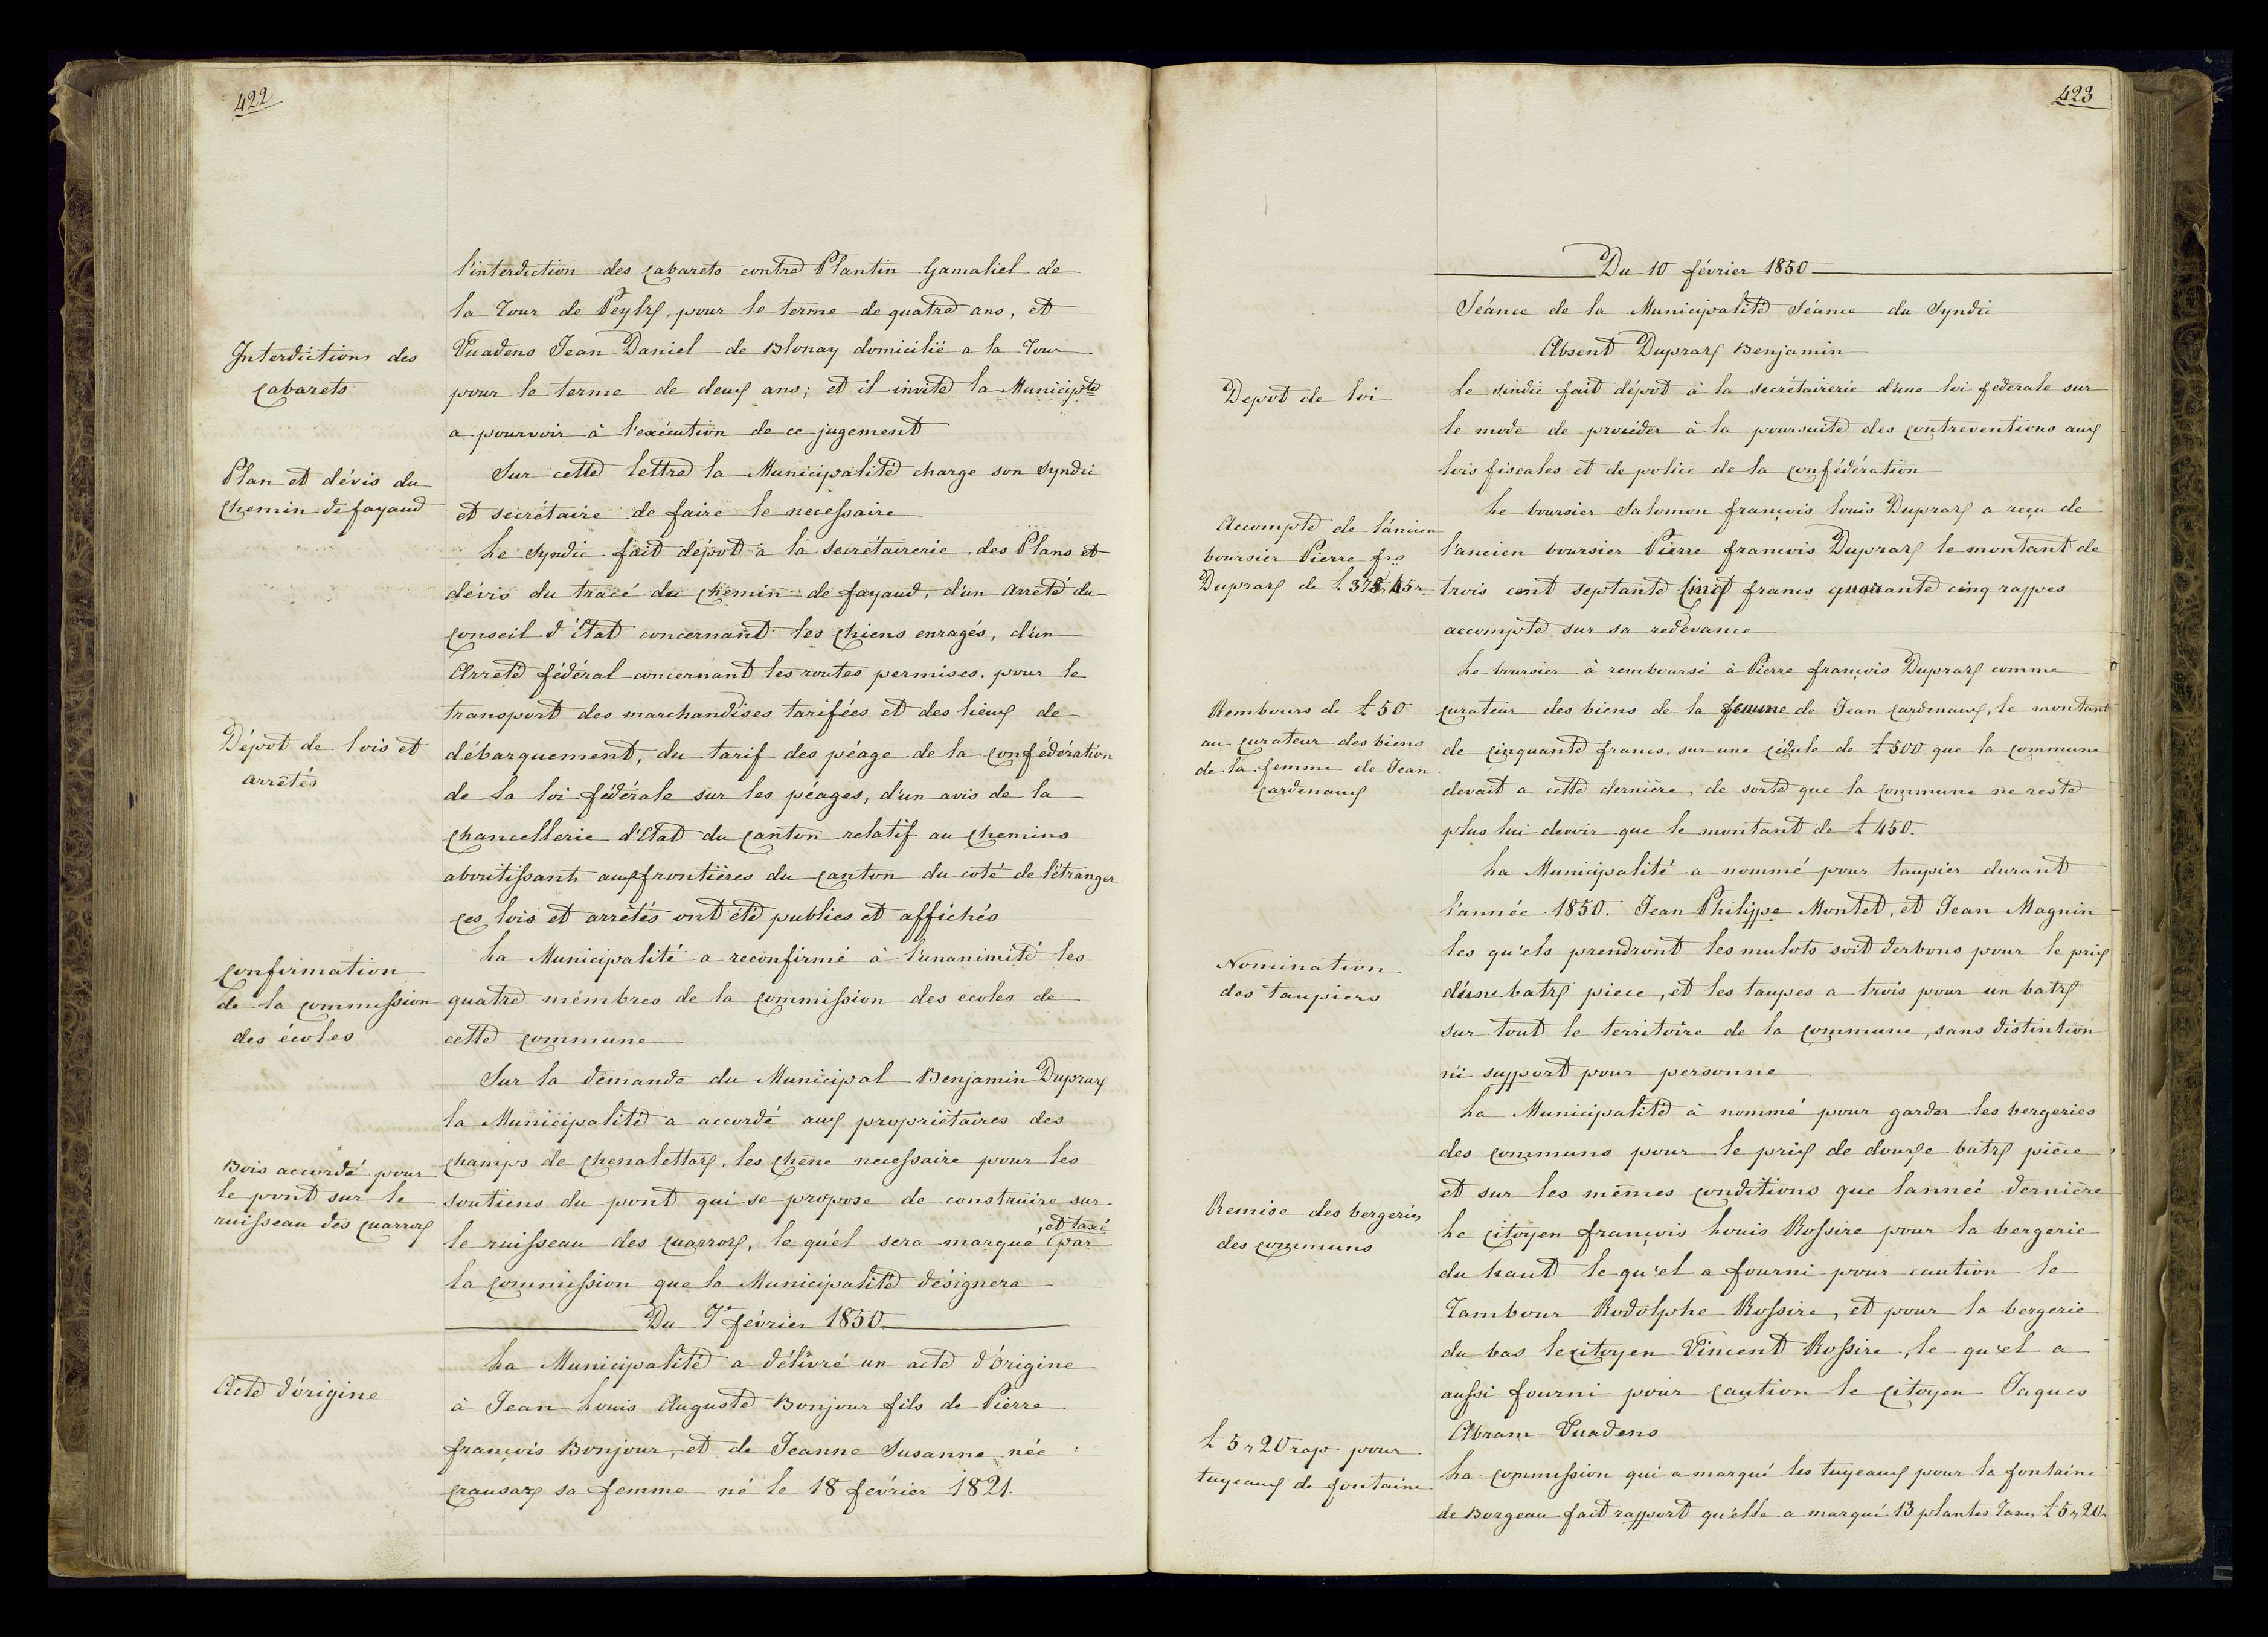 422
l'interdiction des cabarets contre Plantin Gamaliel de
la Tour de Peylz, pour le terme de quatre ans, et
Interdictions des
cabarets
Vuadens Jean Daniel de Blonay domicilié a la Tour
pour le terme de deux ans; et il invite la Municipté
a pourvoir à l'exécution de ce jugement
Plan et dévis du
chemin de fayaud
Sur cette lettre la Municipalité charge son Syndic
et secrétaire de faire le necessaire
Le Syndic fait dépot a la secrétairerie des Plans et
dévis du tracé du chemin de fayaud, d'un arreté du
conseil d'État concernant les chiens enragés, d'un
Arreté fédéral concernant les routes permises pour le
transport des marchandises tarifées et des lieux de
Dépot de lois et
arrêtés
débarquement, du tarif des péage de la confédération
de la loi fédérale sur les péages, d'un avis de la
chancellerie d'Etat du canton relatif au chemins
aboutissants aux frontières du canton du coté de l'étranger
ces lois et arrêtés ont été publies et affichés
Confirmation
de la commission
des écoles
La Municipalité a reconfirmé à l'unanimité les
quatre mémbres de la commission des ecoles de
cette commune
Sur la demande du Municipal Benjamin Dupraz
la Municipalité a accordé aux propriétaires des
Bois accordé pour
le pont sur le
ruisseau des quarroz
champs de chenalettaz, les chêne necessaire pour les
soutiens du pont qui se propose de construire sur
le ruisseau des quarroz, le quél sera marqué, et taxé par
la commission que la Municipalité désignera
Du 7e février 1850
Acte d'origine
La Municipalité a délivré un acte d'origine
à Jean Louis Auguste Bonjour fils de Pierre
françois Bonjour, et de Jeanne Susanne née
crausaz sa femme né le 18 février 1821.
423
Du 10 février 1850
Séance de la Municipalité Séance du Syndic
Absent Dupraz Benjamin
Depot de loi
Le sindic fait dépot à la secrétairerie d'une loi federale sur
le mode de procéder à la poursuite des contreventions aux
lois fiscales et de police de la confédération
Accompte de l'áncien
boursier Pierre frs
Dupraz de £ 375,45 r.
Le boursier Salomon françois louis Dupraz a reçu de
l'ancien boursier Pierre francois Dupraz le montant de
trois cent septante cinq francs quarante cinq rappes
accompte sur sa redevance
Le boursier à remboursé à Pierre françois Dupraz comme
Rembours de £ 50
au curateur des biens
de la femme de Jean
Cardenaux
curateur des biens de la femme de Jean Cardenaux, le montant
de cinquante francs, sur une cédule de £ 500 que la commune
devait a cette dernière, de sorte que la commune ne reste
plus lui devoir que le montant de £ 450.
La Municipalité a nommé pour taupier durant
l'année 1850. Jean Philippe Montet, et Jean Magnin
Nomination
des taupiers
les qu'els prendront les mulots soit derbons pour le prix
d'une batz piece, et les taupes a trois pour un batz
sur tout le territoire de la commune, sans distintion
ni support pour personne
La Municipalité à nommé pour garder les bergeries
des communs pour le prix de douze batz pièce
et sur les mêmes conditions que lanneé dernière
Remise des bergeries
des communs
le citoyen françois Louis Rossire pour la bergerie
du haut le qu'el a fourni pour caution le
Tambour Rodolphe Rossire, et pour la bergerie
du bas le citoyen Vincent Rossire, le qu'el a
aussi fourni pour caution le citoyen Jaques
Abram Vuadens
£ 5 " 20 rap pour
tuyeaux de fontaine
La commission qui a marqué les tuyeaux pour la fontaine
de Borgeau fait rapport qu'elle a marqué 13 plantes Taxes £ 5 " 20